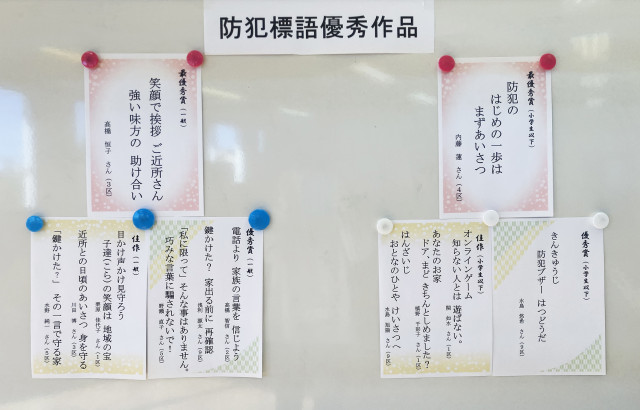 防犯標語優秀作品
最優秀賞(一般)
笑顔で挨拶 ご近所さん
強い味方の 助け合い
高橋 恒子 さん(3区)
最優秀賞(小学生以下)
防犯の
はじめの一歩は
まずあいさつ
内藤 蓮 さん(4区)
優秀賞(一般)
電話より 家族の言葉を 信じよう
鍵かけた? 家出る前に 再確認
「私に限って」そんな事はありません。
巧みな言葉に騙されないで!
佳作(一般)
目かけ声かけ見守ろう
子達(こら)の笑顔は 地域の宝
近所との日頃のあいさつ 身を守る
「鍵かけた?」 その一言で守る家
優秀賞(小学生以下)
きんきゅうじ
防犯ブザー はつどうだ
佳作(小学生以下)
オンラインゲーム
知らない人とは 遊ばない。
あなたのお家
ドア、まど きちんとしめました?
はんざいじ
おとなのひとや けいさつへ